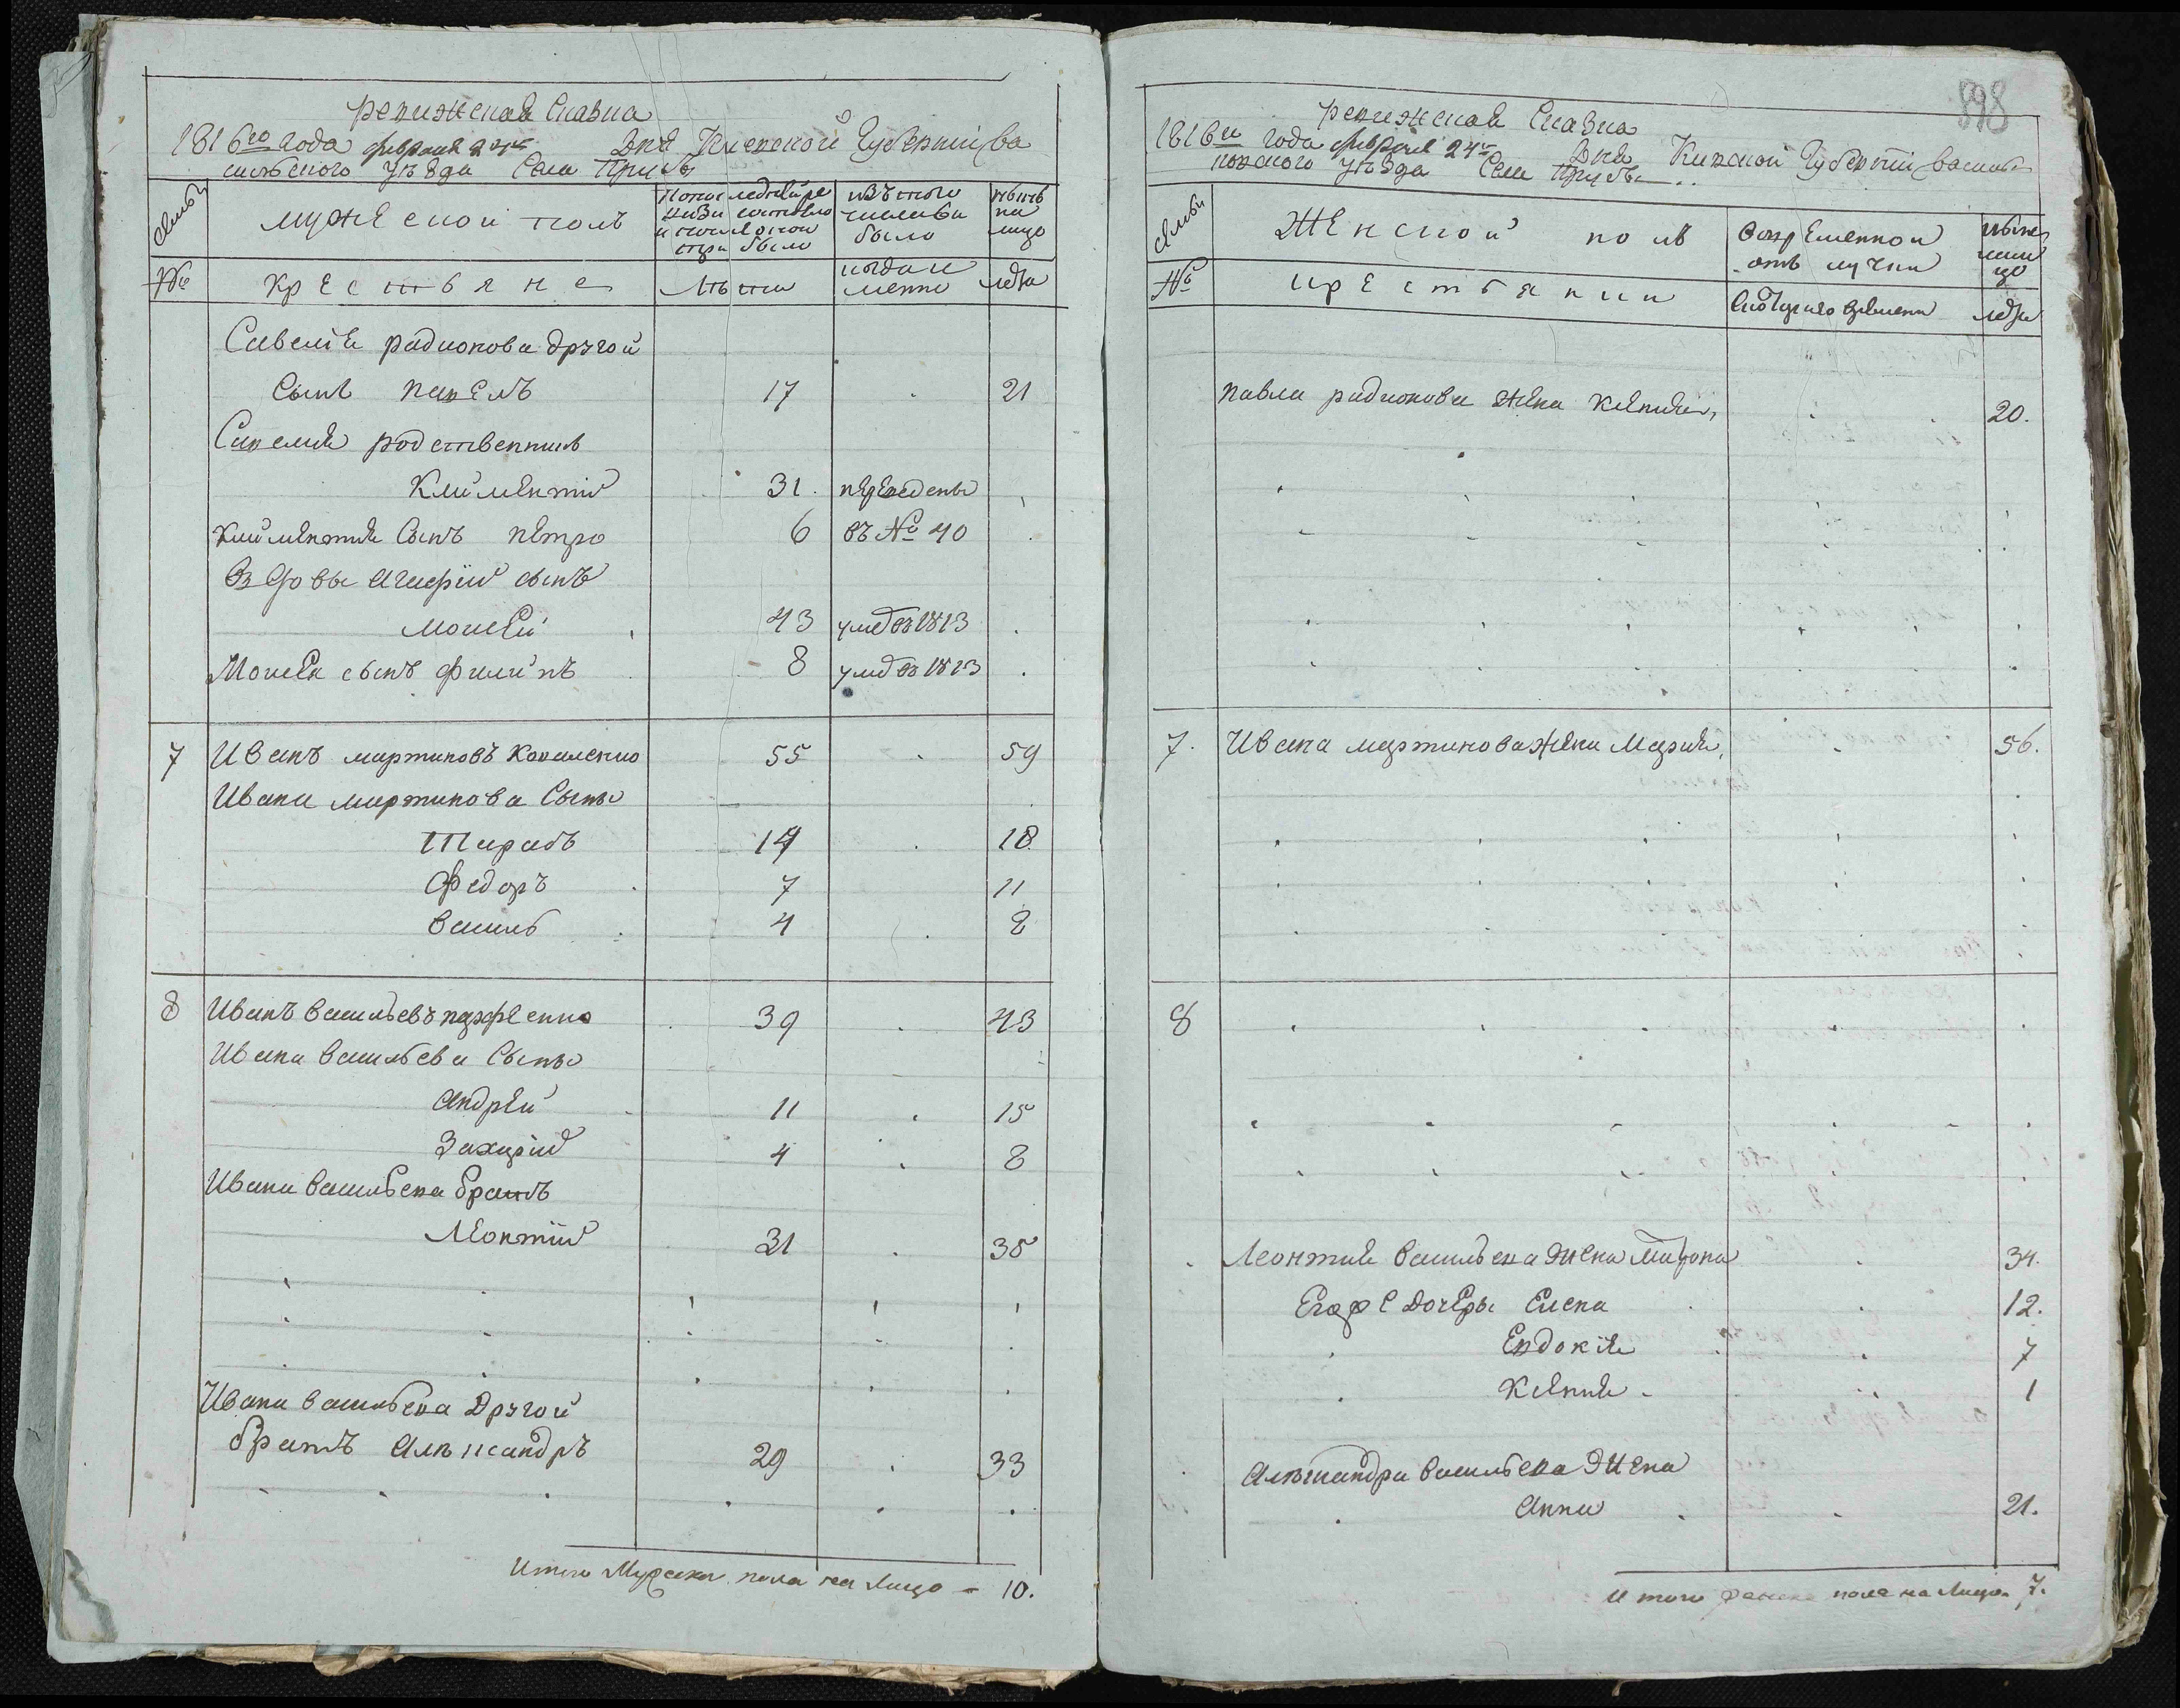 ревизская Сказка
1816го года февраля 24го Дня Киевской Губернiи Ва
сильского уѣзда Села Прусъ
Семьи
мужеской полъ
По последней ре
визiи состояло
и после оной
при было
изъ того
числа вы
было
нынѣ
на
лицо
№
крестьяне
Лѣта
когда и
менно
лѣта
Савелiя радионова другой
Сынъ павелъ 17 21
Савелия родственникъ
Климентiй 31. переведены
Климентия Сынъ петро 6 въ № 40
Вдовы Агафiи сынъ
моисей 43 умеръ въ 1813
Моисея сынъ филипъ 8 умеръ въ 1813
7 Иванъ мартиновъ Коваленко 55 59
Ивана мартинова Сыны
Тарасъ 14 18
Федоръ 7 11
Василь 4 8
8 Иванъ Васильевъ парфенко 39 43
Ивана Васильева Сыны
Андрей 11 15
Захарiй 4 8
Ивана Васильева братъ
Леонтiй 31 35
Ивана Васильева Другой
братъ Александръ 29 33
Итого Мужска пола на Лицо - 10.
898
ревизская Сказка
1816го года февраля 24го Дня Киевской Губернiи Василь
ковского уѣзда Села Прусъ
Семьи
Женской полъ
Во временной
отлучки
нынѣ
на ли
цо
№
крестьянки
Съ котораго времени
лѣта
павла радионова жена Ксения, 20.
7. Ивана мартинова жена Мария, 56.
8
Леонтия Васильева жена Матрона 34.
Егоже дочеры Елена 12.
Евдокiя 7
Ксения 1
Александра Васильева жена
Анна 21.
Итого женска пола на Лицо 7.